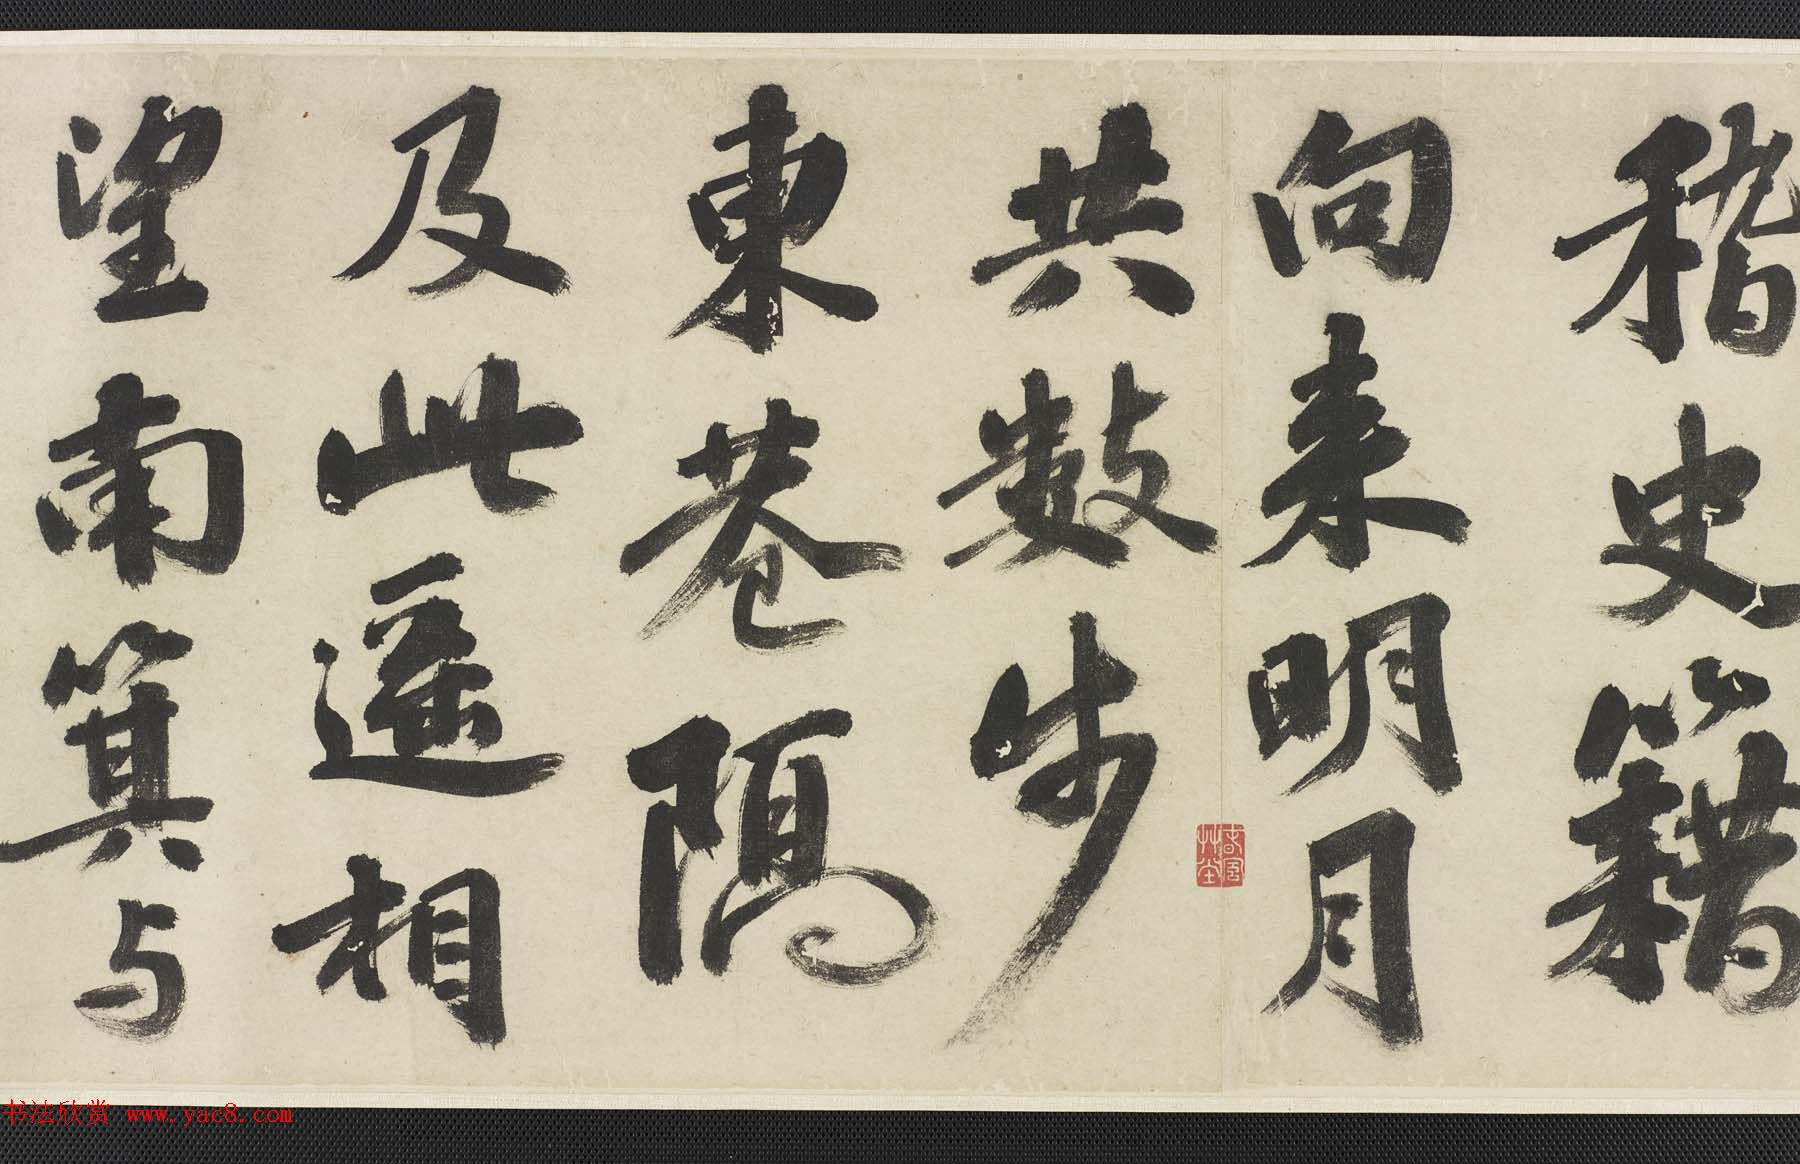 稽史籍
向来明月
共數步
東巷隅
及此遥相
望南箕与
書法欣赏 www.yac8.com